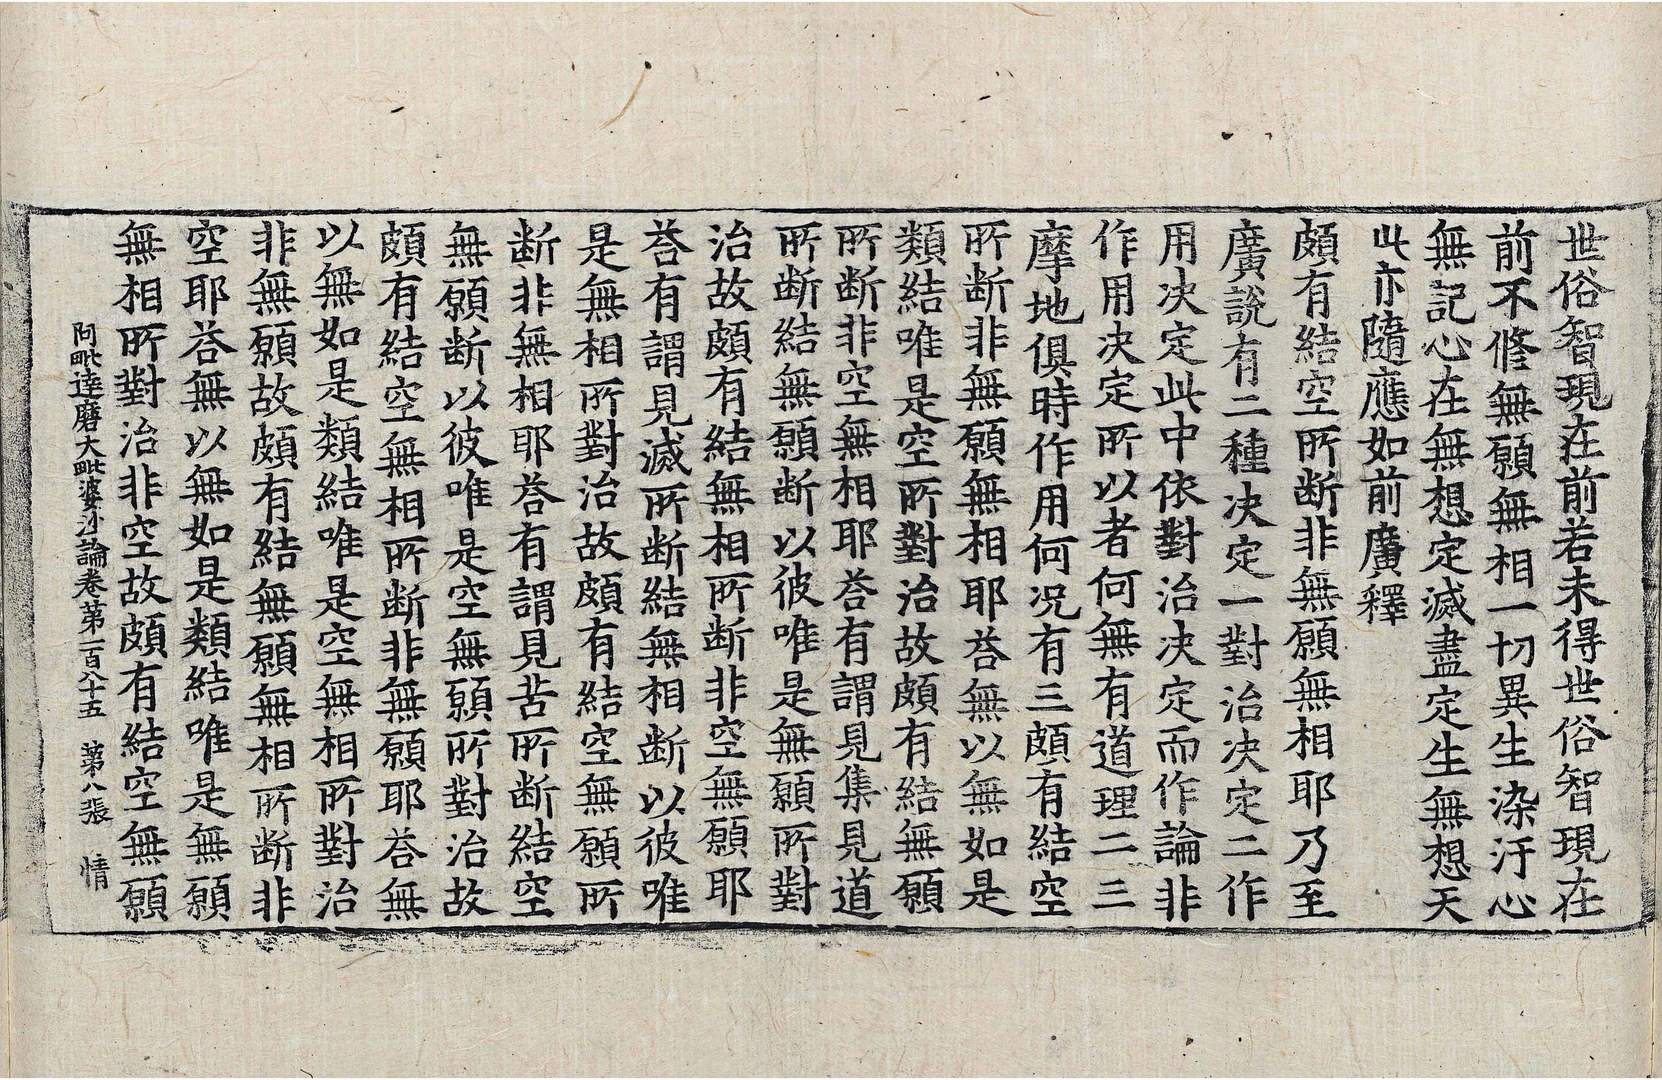 世俗智現在前若未得世俗智現在
前不修無願無相一切異生染汙心
無記心在無想定滅盡定生無想天
此亦隨應如前廣釋
頗有結空所断非無願無相耶乃至
廣說有二種决定一對治决定二作
用决定此中依對治决定而作論非
作用决定所以者何無有道理二三
摩地俱時作用何况有三頗有結空
所断非無願無相耶荅無以無如是
類結唯是空所對治故頗有結無願
所断非空無相耶荅有謂見集見道
所断結無願断以彼唯是無願所對
治故頗有結無相所断非空無願耶
荅有謂見滅所断結無相断以彼唯
是無相所對治故頗有結空無願所
断非無相耶荅有謂見苦所断結空
無願断以彼唯是空無願所對治故
頗有結空無相所断非無願耶荅無
以無如是類結唯是空無相所對治
非無願故頗有結無願無相所断非
空耶荅無以無如是類結唯是無願
無相所對治非空故頗有結空無願
阿毗達磨大毗婆沙論卷第一百八十五 第八張 情